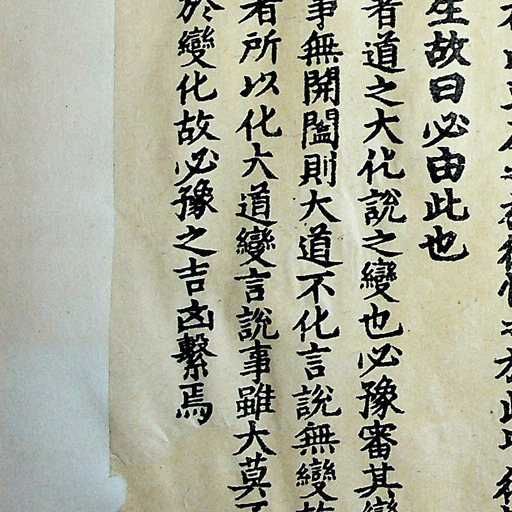 生故曰必由此也
者道之大化說之變也必豫審其變
事無開闔則大道不化言說無變故
者所以化大道變言說事雖大莫不
於變化故必豫之吉凶繫焉